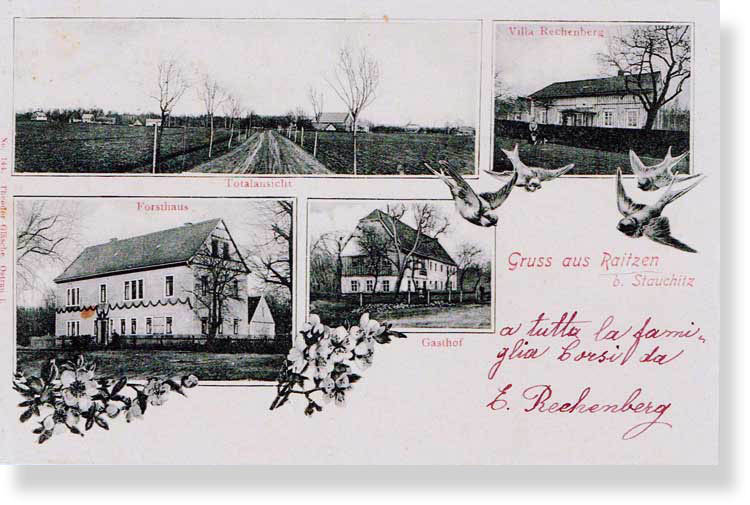 Villa Rechenberg
Totalansicht
Forsthaus
Gasthof
Gruss aus Raitzen
b. Stauchitz
a tutta la fami-
glia Corsi da
E. Rechenberg
No. 144. Theodor Gläsche, Ostrau i.